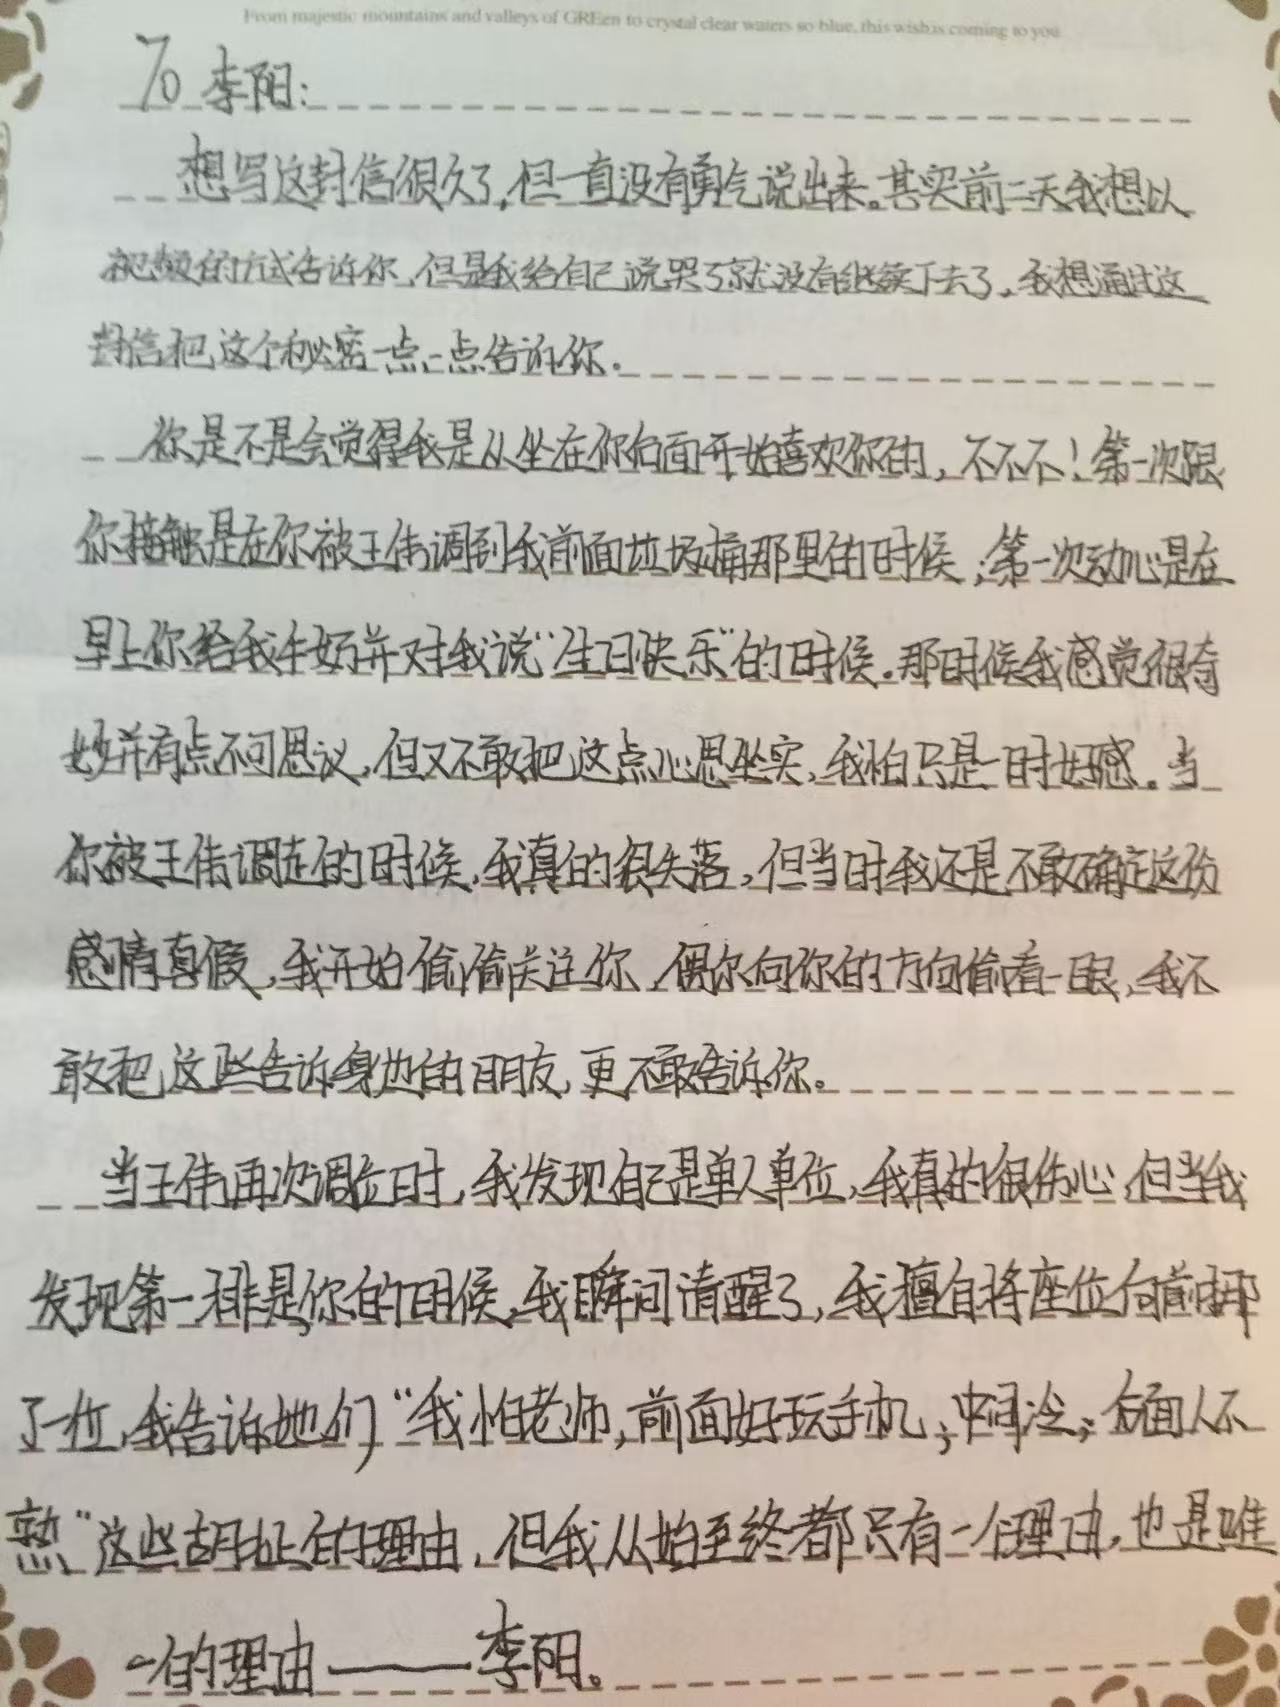 From majestic mountains and valleys of GREen to crystal clear waters so blue, this wish is coming to you
To 李阳:
想写这封信很久了,但一直没有勇气说出来。其实前二天我想以
视频的方式告诉你,但是我给自己说哭了就没有继续下去了,我想通过这
封信把这个秘密一点一点告诉你。
你是不是会觉得我是从坐在你后面开始喜欢你的,不不不!第一次跟
你接触是在你被王伟调到我前面垃圾桶那里的时候;第一次动心是在
早上你给我牛奶并对我说“生日快乐”的时候。那时候我感觉很奇
妙并有点不可思议,但又不敢把这点心思坐实,我怕只是一时好感。当
你被王伟调走的时候,我真的很失落,但当时我还是不敢确定这份
感情真假,我开始偷偷关注你,偶尔向你的方向偷看一眼,我不
敢把这些告诉身边的朋友,更不敢告诉你。
当王伟再次调位时,我发现自己是单人单位,我真的很伤心,但当我
发现第一排是你的时候,我瞬间清醒了,我擅自将座位向前挪
了一位,我告诉她们“我怕老师,前面好玩手机;中间冷;后面人不
熟”这些胡扯的理由,但我从始至终都只有一个理由,也是唯
一的理由——李阳。